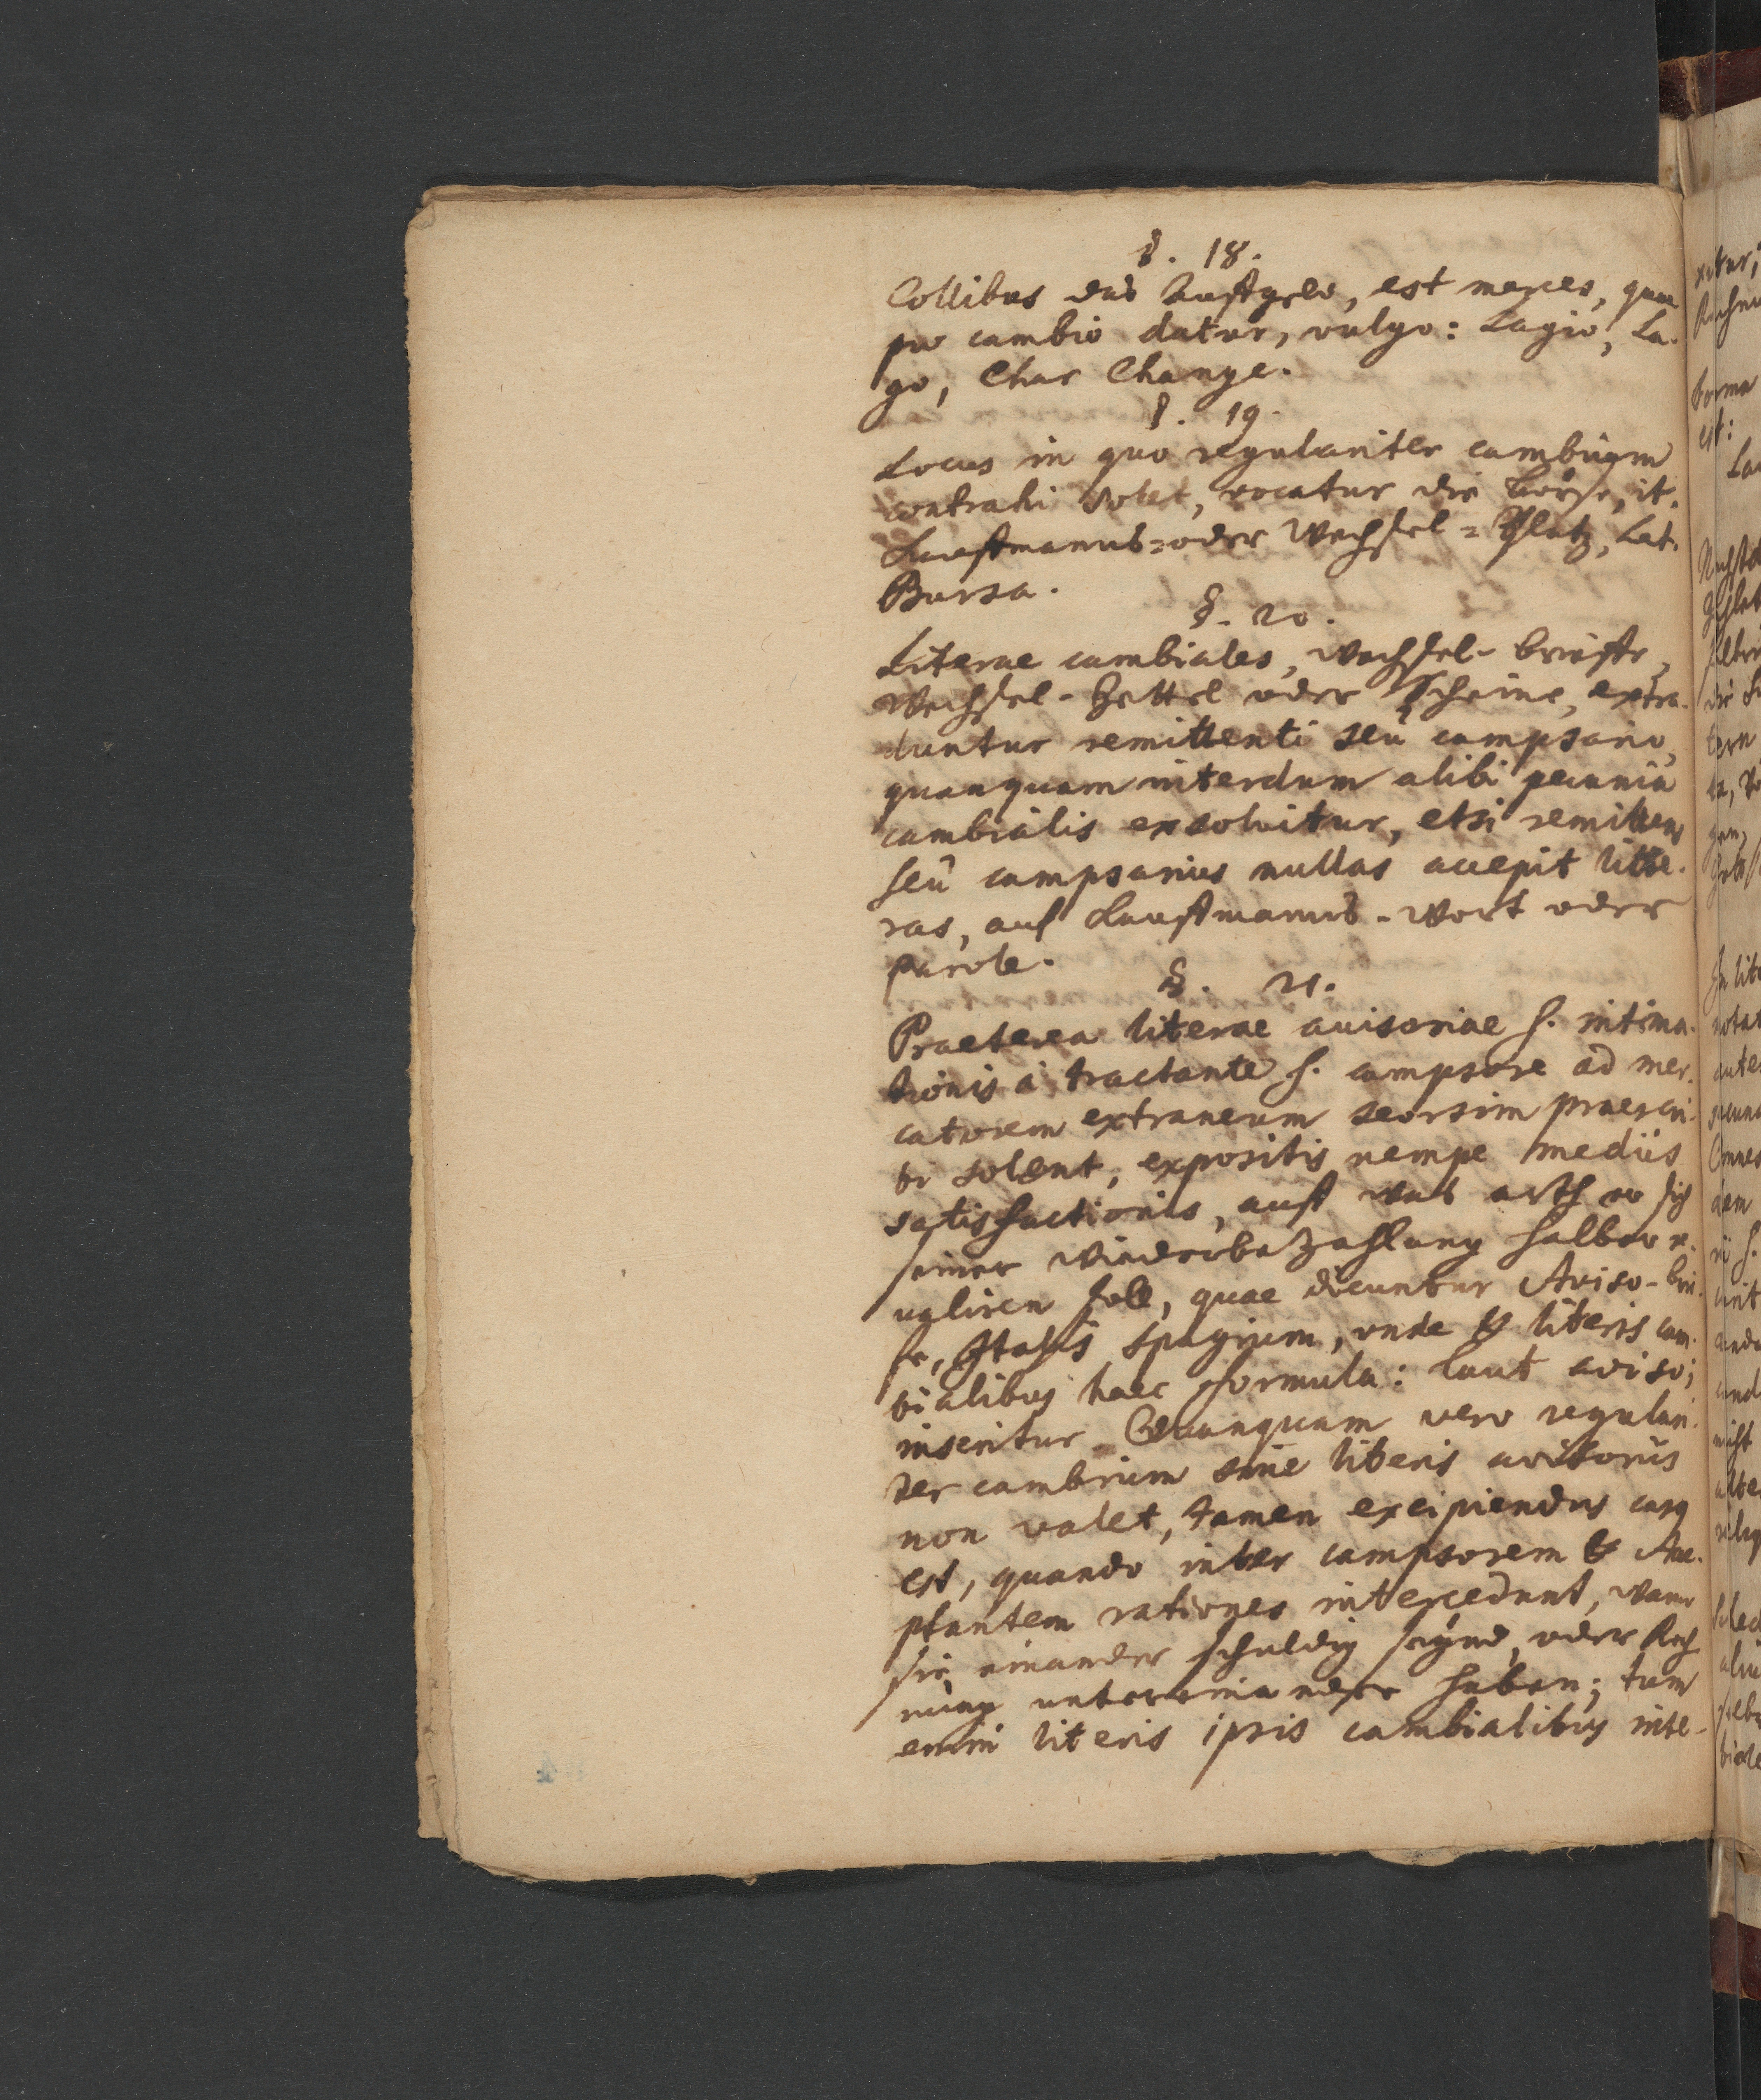 §. 18.
Collibus das Auffgeld, est merces, quae
pro cambio datur, vulgo: Lagio, La-
go, Char Change.
§. 19.
Locus in quo regulariter cambium
contrahi solet, vocatur die börse, it.
Kauffmanns= oder Wechsel=Platz, Lat.
Bursa.
§. 20.
Literae cambiales, Wechsel-brieffe,
Wechsel-Zettel oder Scheine, extra-
duntur remittenti seu campsario,
quanquam interdum alibi pecunia
cambialis exsolvitur, etsi remittens
seu campsarius nullas accepit litte-
ras, auf Kauffmanns-Wort oder
parole.
§. 21.
Praeterea literae avisoriae s. intima-
tionis à tractante s. campsore ad mer-
catorem extraneum seorsim praescri-
bi solent, expositis nempe mediis
satisfactionis, auff was arth er sich
seiner Wiederbezahlung halber r-
valiren soll, quae dicuntur Aviso-bri-
fe, Italis Spagium, unde & literis cam-
bialibus haec formula: laut aviso;
inseritur. Quanquam vero regulari-
ter cambium sine literis avisoriis
non valet, tamen excipiendus casus
est, quando inter campsorem & Acce-
ptantem rationes intercedunt, wann
sie einander schuldig seynd, oder Rech
nung untereinander haben; tum
enim literis ipsis cambialibus inte-